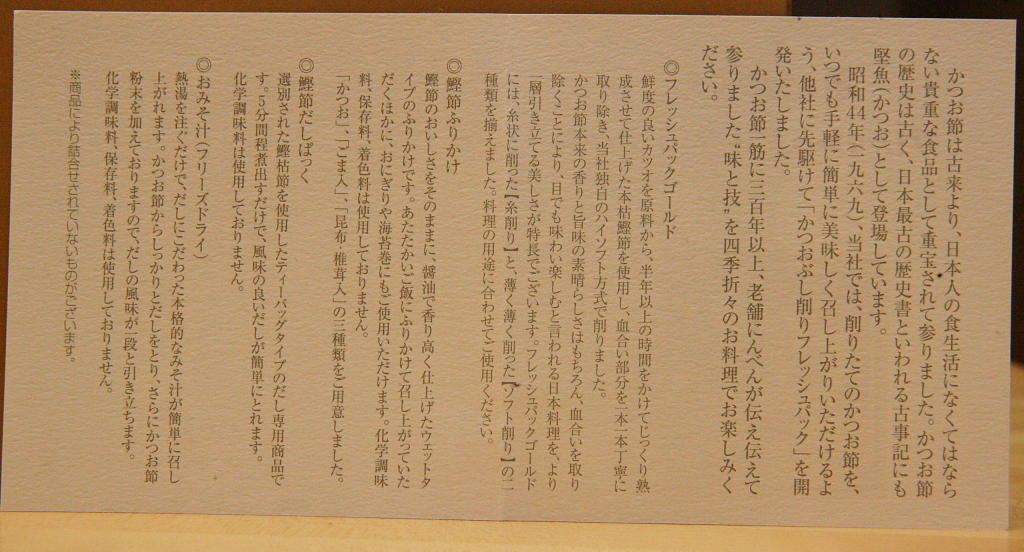 かつお節は古来より、日本人の食生活になくてはなら
ない貴重な食品として重宝されて参りました。かつお節
の歴史は古く、日本最古の歴史書といわれる古事記にも
堅魚(かつお)として登場しています。
昭和44年(一九六九)、当社では、削りたてのかつお節を、
いつでも手軽に簡単に美味しく召し上がりいただけるよ
う、他社に先駆けて「かつおぶし削りフレッシュパック」を開
発いたしました。
かつお節一筋に三百年以上、老舗にんべんが伝え伝えて
参りました“味と技”を四季折々のお料理でお楽しみく
ださい。
◎フレッシュパックゴールド
鮮度の良いカツオを原料から、半年以上の時間をかけてじっくり熟
成させて仕上げた本枯鰹節を使用し、血合い部分を一本一本丁寧に
取り除き、当社独自のハイソフト方式で削りました。
かつお節本来の香りと旨味の素晴らしさはもちろん、血合いを取り
除くことにより、目でも味わい楽しむと言われる日本料理を、より
一層引き立てる美しさが特長でございます。フレッシュパックゴールド
には、糸状に削った【糸削り】と、薄く薄く削った【ソフト削り】の二
種類を揃えました。料理の用途に合わせてご使用ください。
◎鰹節ふりかけ
鰹節のおいしさをそのままに、醤油で香り高く仕上げたウェットタ
イプのふりかけです。あたたかいご飯にふりかけて召し上がっていた
だくほかに、おにぎりや海苔巻にもご使用いただけます。化学調味
料、保存料、着色料は使用しておりません。
「かつお」、「ごま入」、「昆布・椎茸入」の三種類をご用意しました。
◎鰹節だしぱっく
選別された鰹枯節を使用したティーバッグタイプのだし専用商品で
す。5分間程煮出すだけで、風味の良いだしが簡単にとれます。
化学調味料は使用しておりません。
◎おみそ汁(フリーズドライ)
熱湯を注ぐだけで、だしにこだわった本格的なみそ汁が簡単に召し
上がれます。かつお節からしっかりとだしをとり、さらにかつお節
粉末を加えておりますので、だしの風味が一段と引き立ちます。
化学調味料、保存料、着色料は使用しておりません。
※商品により詰合せされていないものがございます。